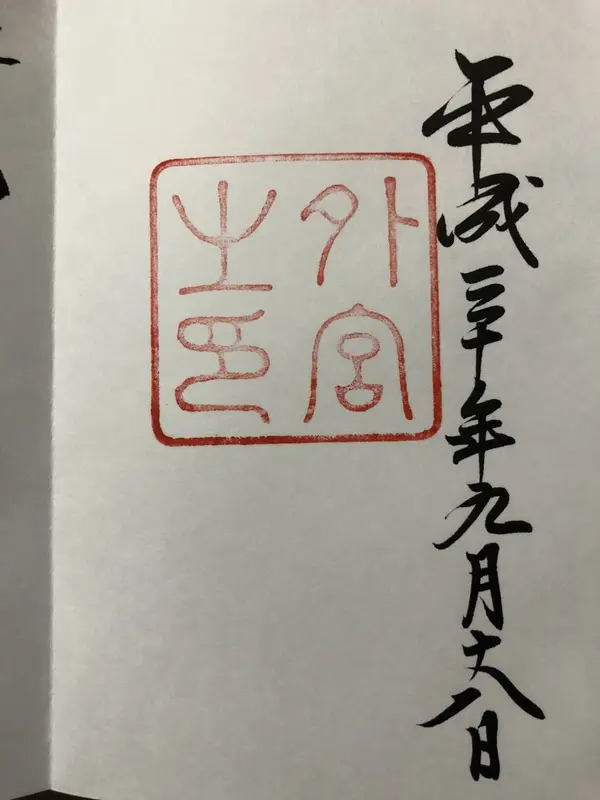 平成三十年九月十八日
外宮
之印